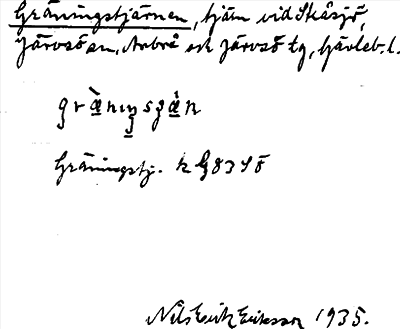 Gräningstjärnen, tjärn vid Skåsjö,
Järvsö sn, Arbrå ock Järvsö tg, Gävleb. l.
Gräningstj. k G 83 SÖ
Nils Erik Eriksson 1935.